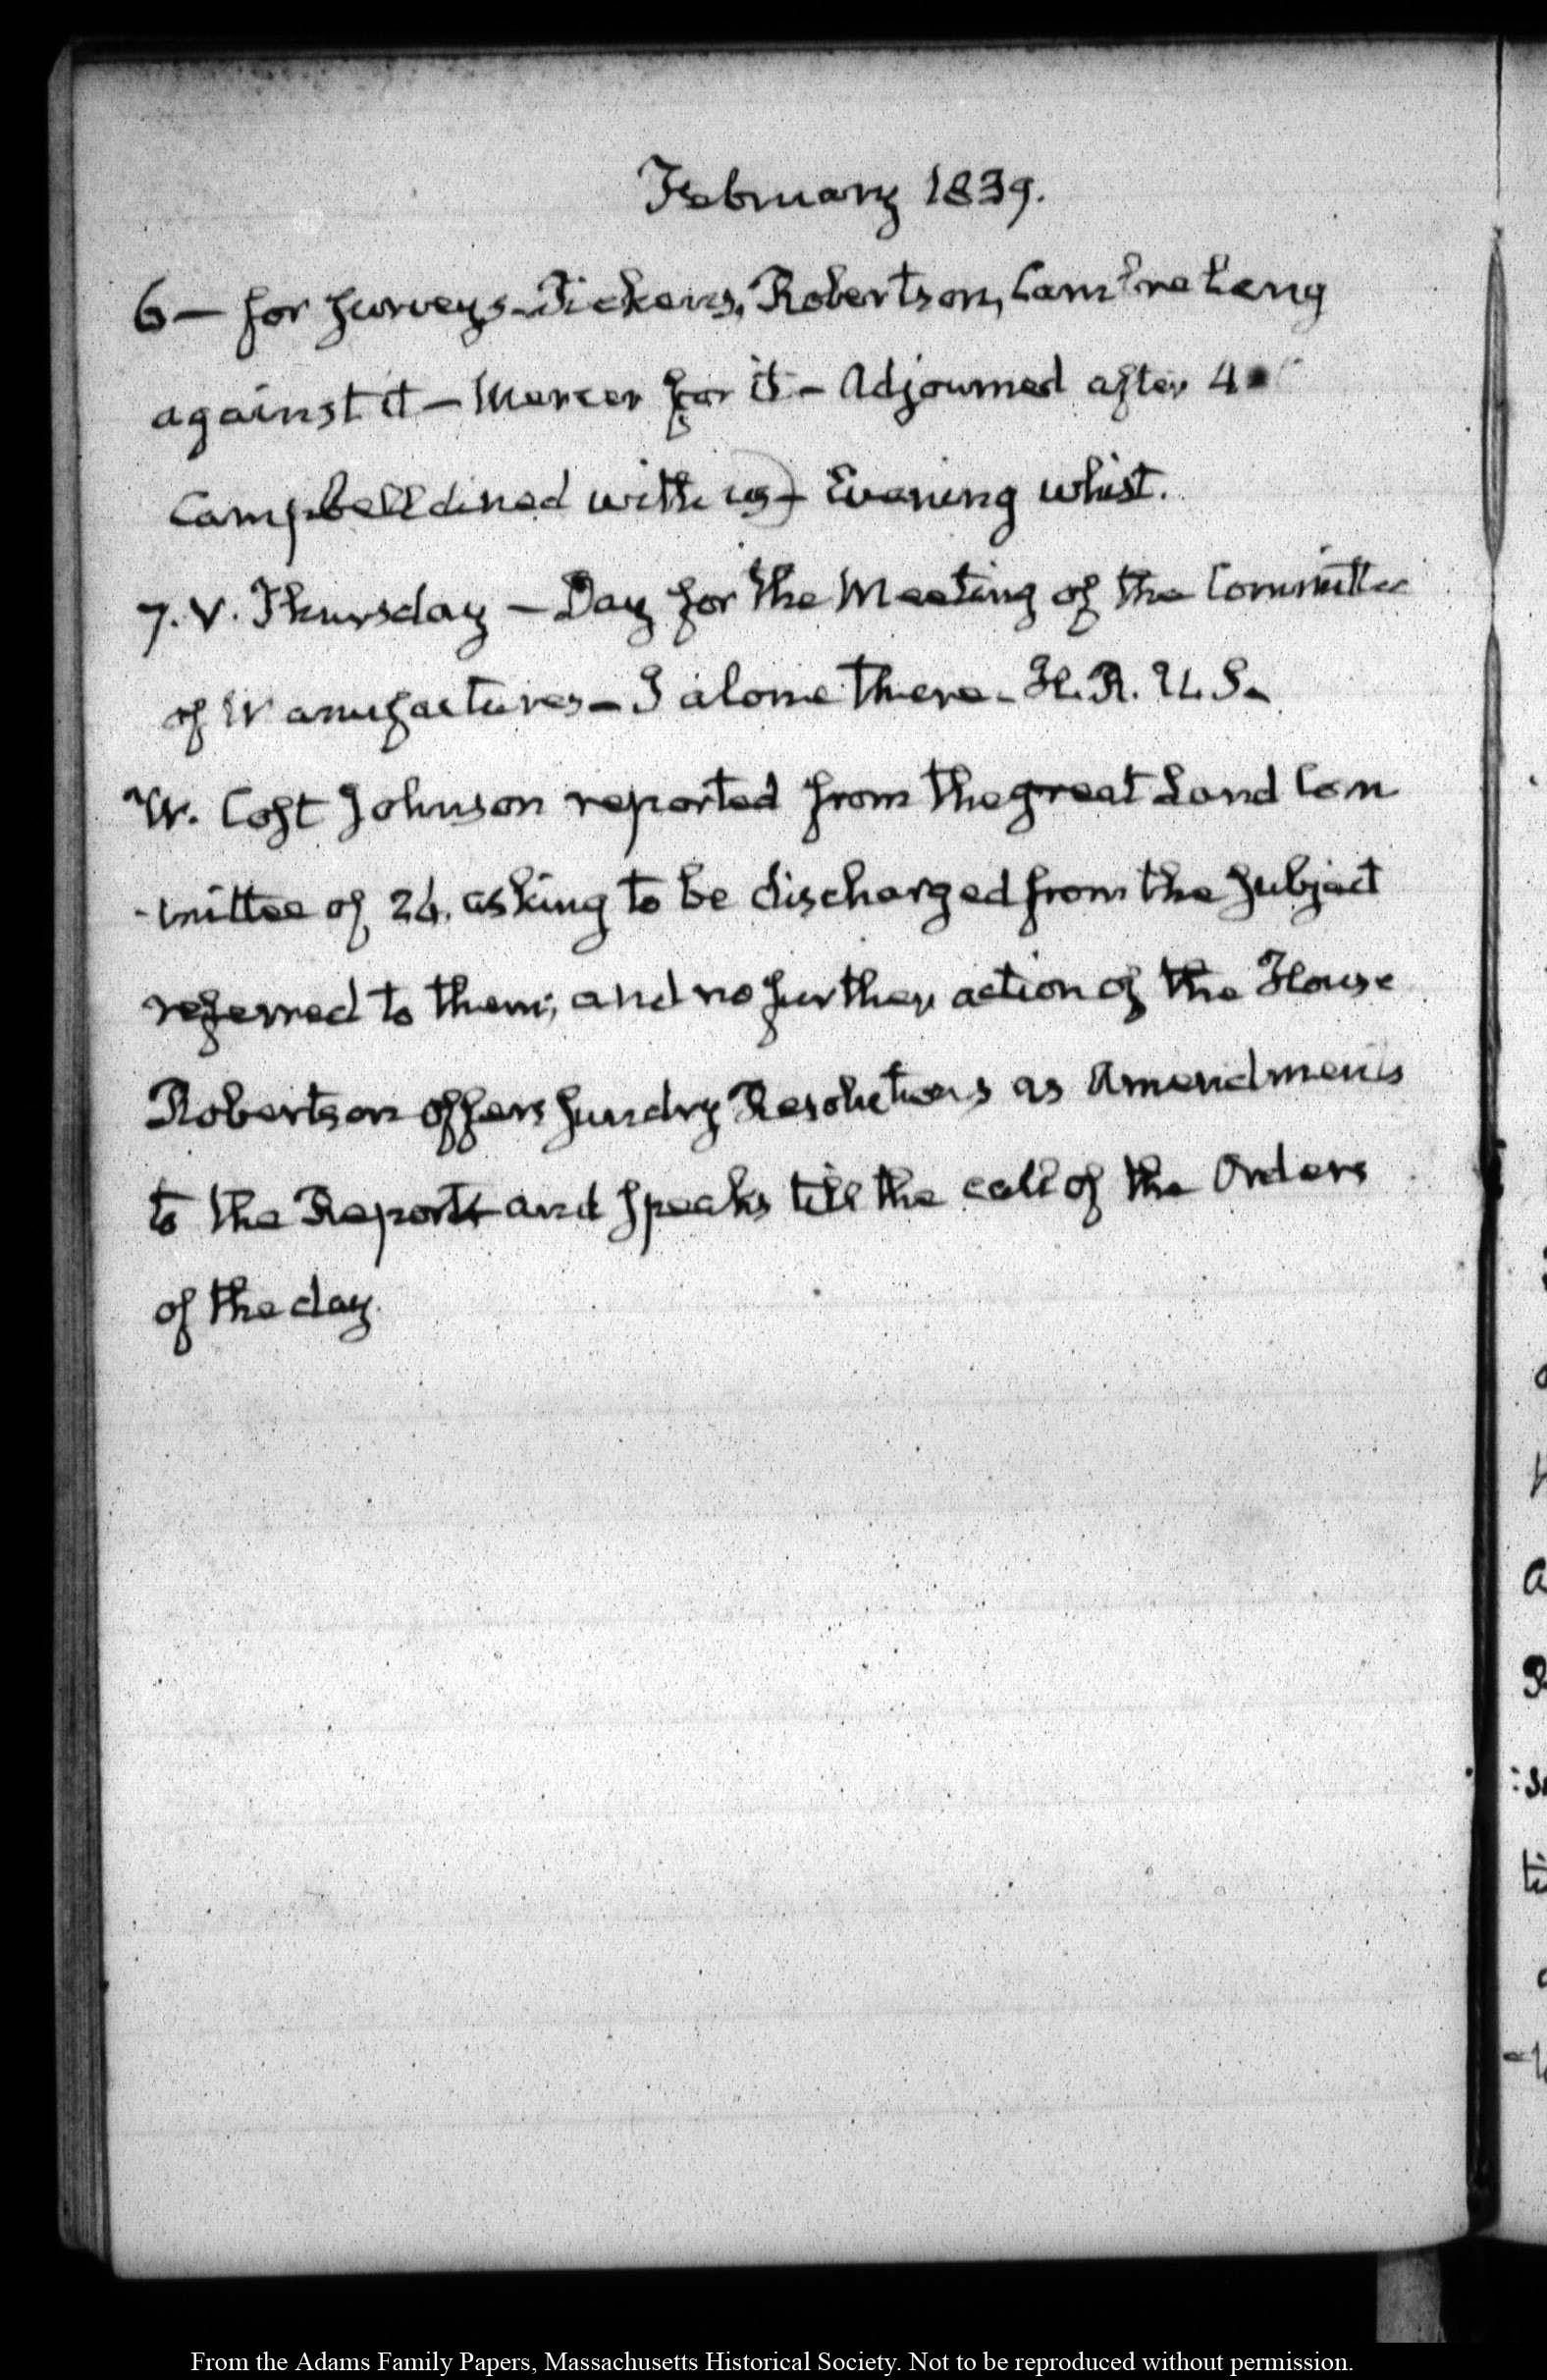 February 1839.
6 — for surveys - Pickens, Robertson, Cambreleng
against it — Mercer for it — Adjourned after 4
Campbell dined with us) — Evening whist.
7. V. Thursday — Day for the Meeting of the Committee
of Manufactures — I alone there — H. R. U. S —
W. Cost Johnson reported from the great Land Com
-mittee of 26. asking to be discharged from the subject
referred to them; and no further action of the House
Robertson offers sundry Resolutions as Amendments
to the Report and speaks till the call of the Orders
of the day.
From the Adams Family Papers, Massachusetts Historical Society. Not to be reproduced without permission.